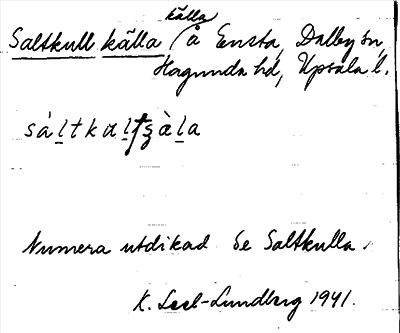 källa
Saltkull källa / å Ensta, Dalby sn,
Hagunda hd, Upsala l.
sáltkulʈʂàla
Numera utdikad. Se Saltkulla.
K. Leel-Lundberg 1941.